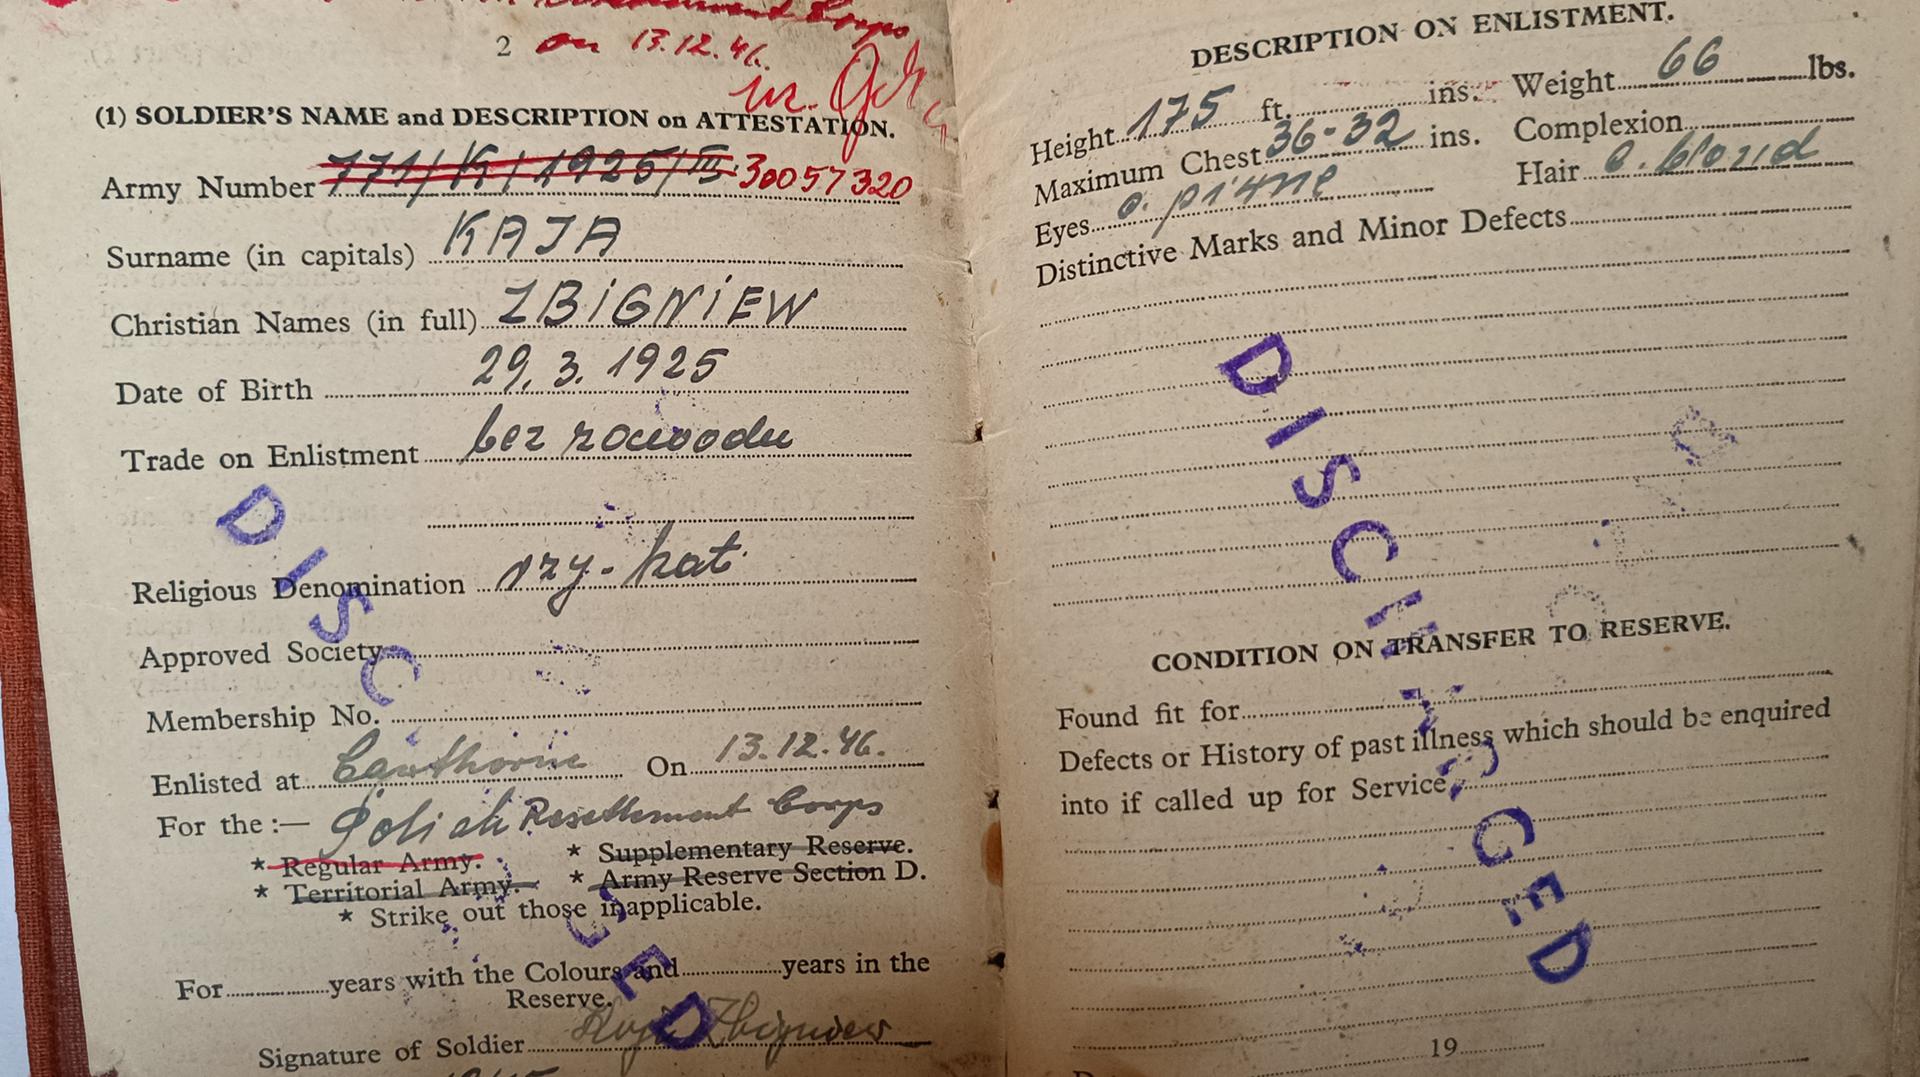 Resettlement Corps
2 on 13.12.46.
(1) SOLDIER'S NAME and DESCRIPTION on ATTESTATION.
Army Number 771/K/1925/III 30057320
Surname (in capitals) KAJA
Christian Names (in full) ZBIGNIEW
Date of Birth 29.3.1925
Trade on Enlistment bez zawodu
Religious Denomination rzy-kat
Approved Society
Membership No.
Enlisted at Cawthorne On 13.12.46.
For the :— Polish Resettlement Corps
* Regular Army. * Supplementary Reserve.
* Territorial Army. * Army Reserve Section D.
* Strike out those inapplicable.
For years with the Colours and years in the
Reserve.
Signature of Soldier Kaja Zbigniew
DISCHARGED
DESCRIPTION ON ENLISTMENT.
Height 175 ft. ins. Weight 66 lbs.
Maximum Chest 36-32 ins. Complexion
Eyes c. piwne Hair c. blond
Distinctive Marks and Minor Defects
CONDITION ON TRANSFER TO RESERVE.
Found fit for
Defects or History of past illness which should be enquired
into if called up for Service
19
DISCHARGED